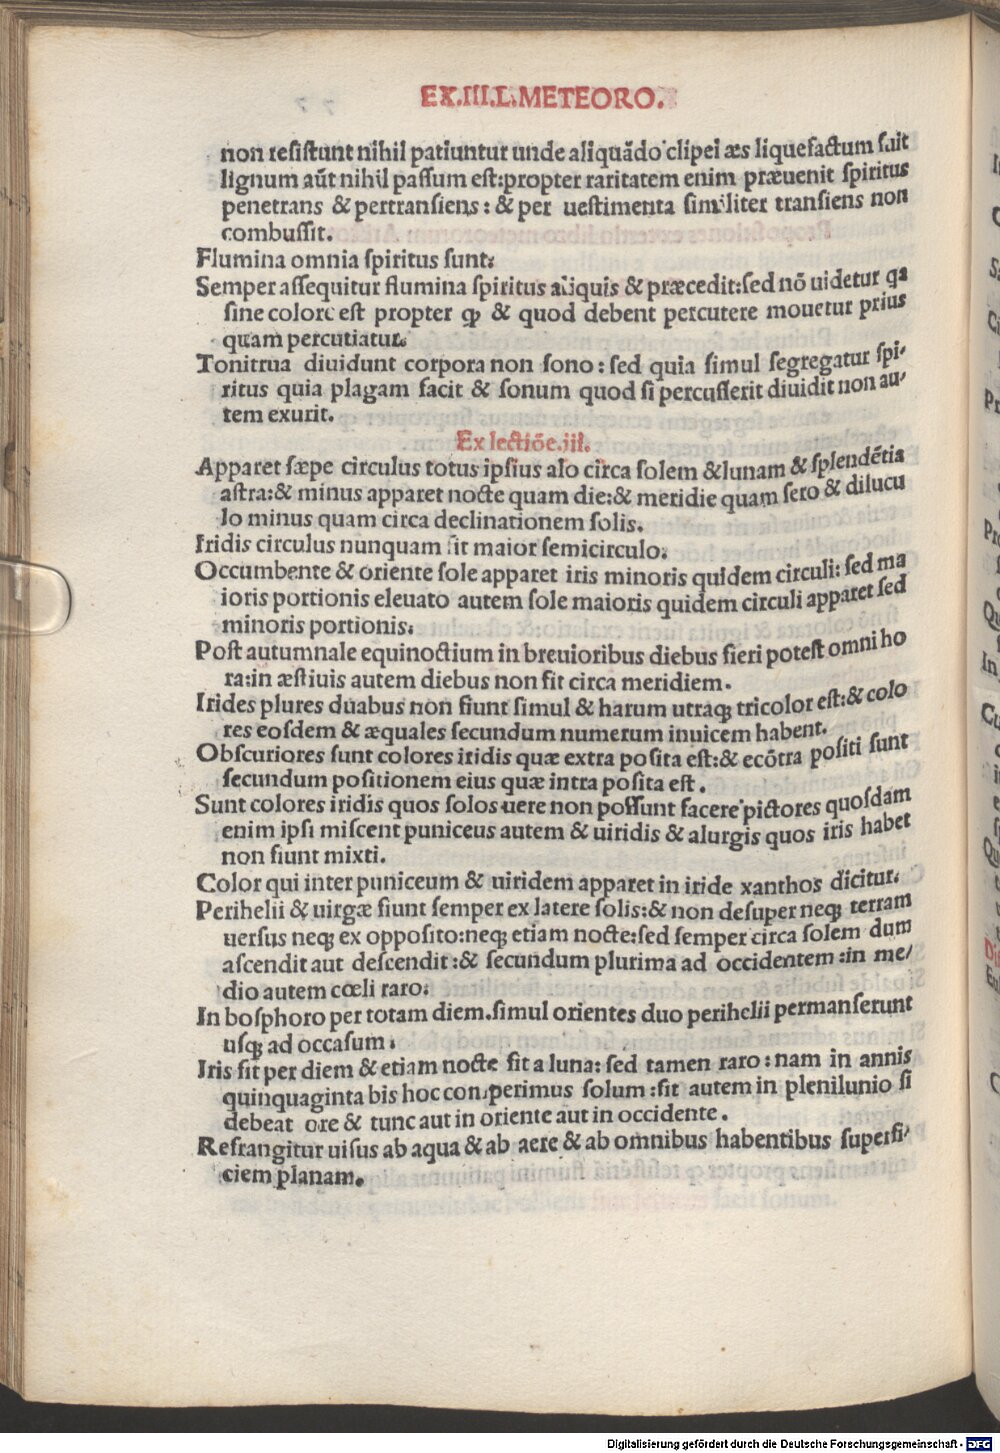 EX.III.L.METEORO.
non resistunt nihil patiuntur unde aliquãdo clipei æs liquefactum fuit
lignum aũt nihil passum est:propter raritatem enim præuenit spiritus
penetrans & pertransiens: & per uestimenta similiter transiens non
combussit.
Flumina omnia spiritus sunt.
Semper assequitur flumina spiritus aliquis & præcedit:sed nõ uidetur qa
sine colore est propter ꝙ & quod debent percutere mouetur prius
quam percutiatur.
Tonitrua diuidunt corpora non sono: sed quia simul segregatur spi-
ritus quia plagam facit & sonum quod si percusserit diuidit non au-
tem exurit.
Ex lectiõe.iii.
Apparet sæpe circulus totus ipsius alo circa solem &lunam & splendẽtia
astra:& minus apparet nocte quam die:& meridie quam sero & dilucu
lo minus quam circa declinationem solis.
Iridis circulus nunquam fit maior semicirculo.
Occumbente & oriente sole apparet iris minoris quidem circuli: sed ma
ioris portionis eleuato autem sole maioris quidem circuli apparet sed
minoris portionis.
Post autumnale equinoctium in breuioribus diebus fieri potest omni ho
ra:in æstiuis autem diebus non fit circa meridiem.
Irides plures duabus non fiunt simul & harum utraqꝫ tricolor est:& colo
res eosdem & æquales secundum numerum inuicem habent.
Obscuriores sunt colores iridis quæ extra posita est:& ecõtra positi sunt
secundum positionem eius quæ intra posita est.
Sunt colores iridis quos solos uere non possunt facere pictores quosdam
enim ipsi miscent puniceus autem & uiridis & alurgis quos iris habet
non fiunt mixti.
Color qui inter puniceum & uiridem apparet in iride xanthos dicitur.
Perihelii & uirgæ fiunt semper ex latere solis:& non desuper neqꝫ terram
uersus neqꝫ ex opposito:neqꝫ etiam nocte:sed semper circa solem dum
ascendit aut descendit:& secundum plurima ad occidentem:in me/
dio autem cœli raro.
In bosphoro per totam diem.simul orientes duo perihelii permanserunt
usqꝫ ad occasum.
Iris fit per diem & etiam nocte fit a luna: sed tamen raro: nam in annis
quinquaginta bis hoc comperimus solum:fit autem in plenilunio si
debeat ore & tunc aut in oriente aut in occidente.
Refrangitur uisus ab aqua & ab aere & ab omnibus habentibus superfi-
ciem planam.
Digitalisierung gefördert durch die Deutsche Forschungsgemeinschaft - DFG